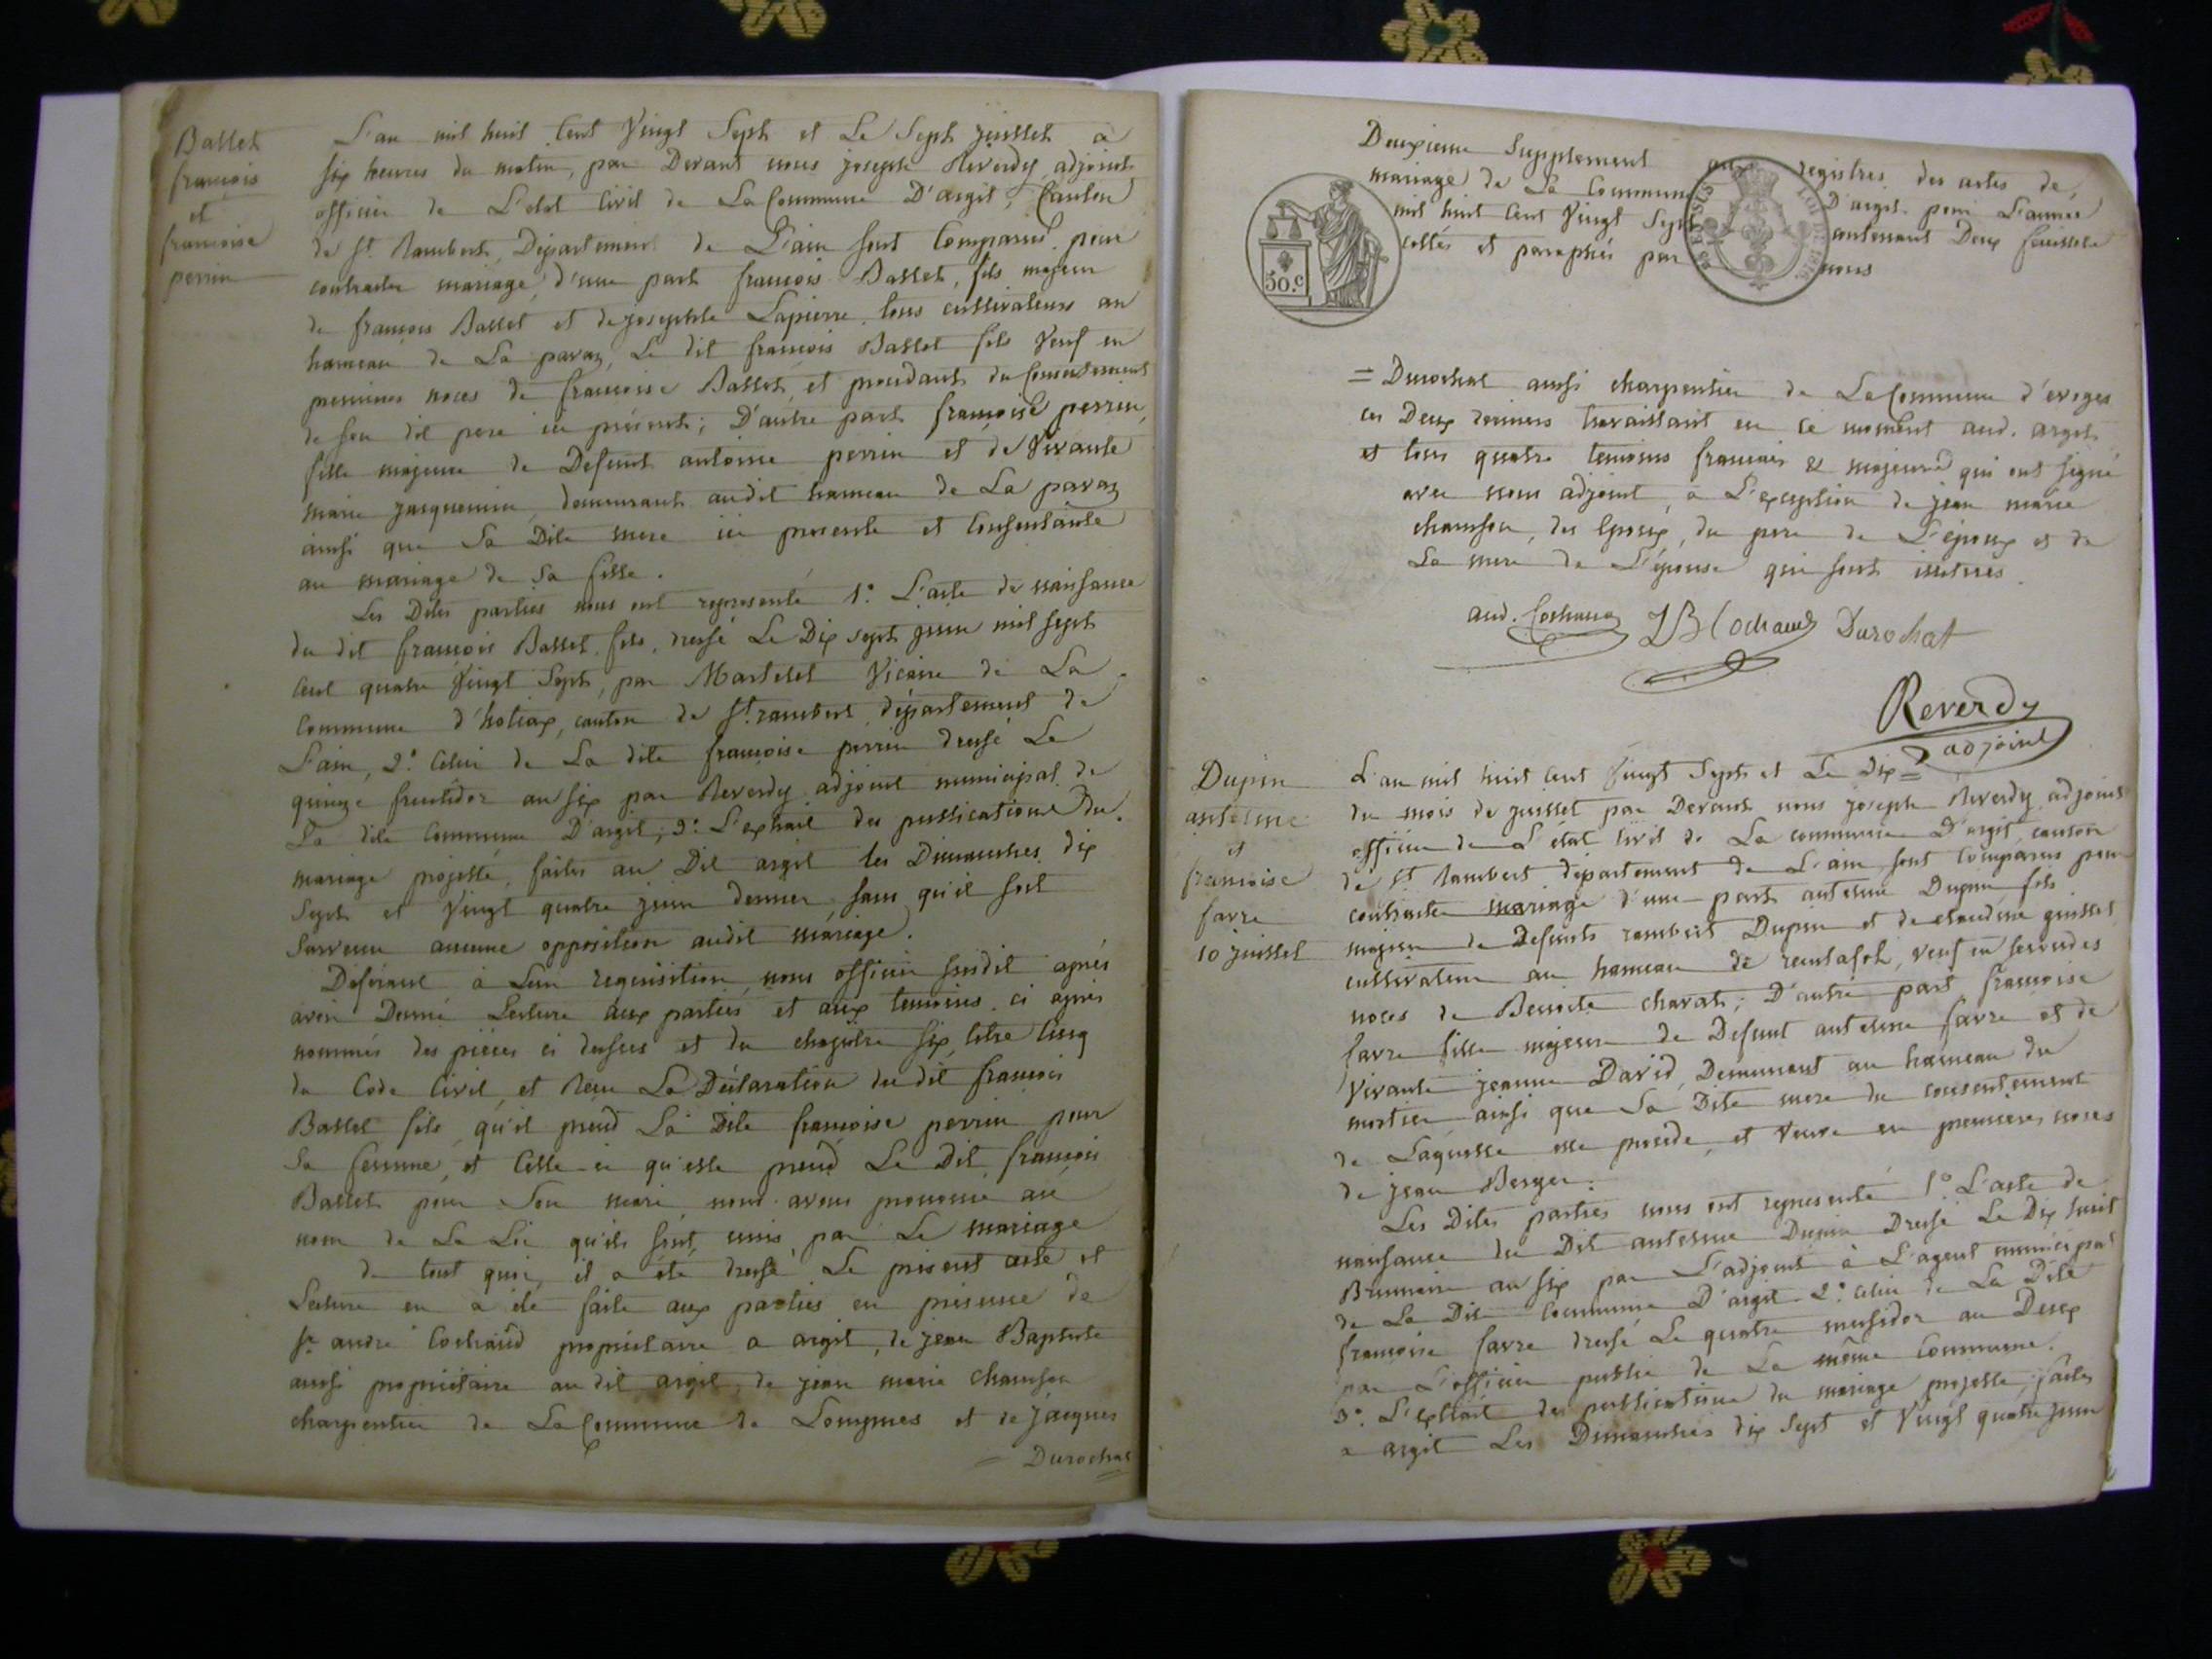 Ballet
francois
et
francoise
perrin
L'an mil huit Cent Vingt Sept et Le Sept juillet a
six heures du matin, par Devant nous joseph Reverdy, adjoint
officier de L'etat Civil de La Commune D'argit, Canton
de St. Rambert, Département de L'ain sont Comparus pour
contracter mariage, d'une part francois Ballet, fils majeur
de francois Ballet et de josephte Lapierre tous cultivateurs au
hameau de La paraz, Le dit francois Ballet fils Veuf en
premieres noces de francoise Ballet, et procedant du Consentement
de son dit pere ici présent; D'autre part francoise perrin,
fille majeure de Defunt antoine perrin et de Vivante
marie jacquemin, demeurant audit hameau de La paraz
ainsi que Sa Dite mere ici presente et Consentante
au mariage de Sa fille.
Les Dites parties nous ont representé 1.° L'acte de naissance
du dit francois Ballet fils, dressé Le Dix sept juin mil sept
Cent quatre Vingt Sept, par Martelet Vicaire de La
Commune d'hotiax, canton de St. rambert, département de
L'ain, 2.° Celui de La dite francoise perrin dressé Le
quinze fructidor an six par Reverdy adjoint municipal de
La dite Commune D'argit; 3.° L'extrait des publications du
mariage projetté, faites au Dit argit les Dimanches dix
Sept et Vingt quatre juin dernier sans qu'il soit
Survenu aucune opposition audit mariage.
Déférant à Leur requisition, nous officier susdit après
avoir Donné Lecture aux parties et aux temoins ci après
nommés des pièces ci dessus et du chapitre six, titre Cinq
du Code Civil, et Reçu La Déclaration du dit francois
Ballet fils, qu'il prend La Dite francoise perrin pour
Sa femme, et Celle ci qu'elle prend Le Dit francois
Ballet pour Son mari, nous avons prononcé au
nom de La Loi qu'ils sont unis par Le mariage
de tout quoi, il a été dressé Le present acte et
Lecture en a été faite aux parties en présence de
Sr. andré Cochaud propriétaire a argit, de jean Baptiste
aussi propriétaire au dit argit, de jean marie chanson
charpentier de La Commune de Longmes et de jacques
= Durochat
Deuxieme Supplement aux registres des actes de
mariage de La Commune D'argit pour L'année
mil huit Cent Vingt Sept contenant Deux feuillets
cottés et paraphés par nous
50.c
LOI DE 1816.
= Durochat aussi charpentier de La Commune d'evoges
ces Deux derniers travaillant en ce moment aud. argit
et tous quatre temoins francais & majeurs qui ont signé
avec nous adjoint, a L'exception de jean marie
chanson, des Epoux, du pere de L'époux et de
La mere de L'épouse qui sont illiterés.
and. Cochaud JB Cochaud Durochat
Reverdy
adjoint
Dupin
antelme
et
francoise
favre
10 juillet
L'an mil huit Cent Vingt Sept et Le Dix =
du mois de juillet par Devant nous joseph Reverdy adjoint
officier de L'état Civil de La commune D'argit, canton
de St. Rambert département de L'ain sont Comparus pour
contracter mariage d'une part antelme Dupin fils
majeur de Defunts rambert Dupin et de claudine guillot
cultivateur au hameau de reculafol, veuf en secondes
noces de Benoite charat; D'autre part francoise
favre fille majeure de Defunt antelme favre et de
Vivante jeanne David, Demeurant au hameau du
mortier ainsi que Sa Dite mere du consentement
de Laquelle elle procede, et Veuve en premieres noces
de jean Berger.
Les Dites parties nous ont representé 1.° L'acte de
naissance du Dit antelme Dupin Dressé Le Dix huit
Brumaire an six par L'adjoint à L'agent municipal
de La Dite Commune D'argit 2.° Celui de La Dite
francoise favre dressé Le quatre messidor an Deux
par L'officier public de La même Commune.
3.° L'extrait des publications du mariage projetté, faites
a argit Les Dimanches dix Sept et Vingt quatre juin